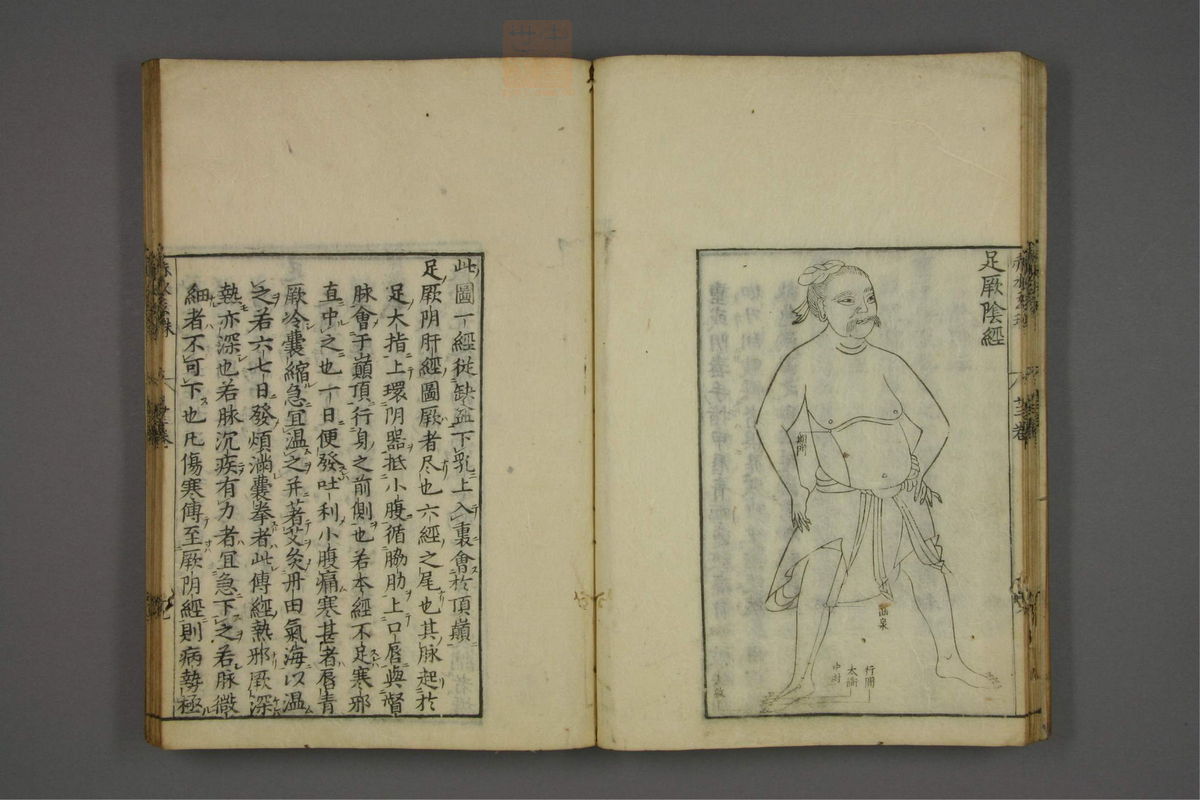 足厥陰經
期門
曲泉
行間
太衝
中封
此圖丁經從缺盆下乳上入裏會於頂巔
足厥阴肝經圖厥者尽也六經之尾也其脉起於
足大指上環阴器抵小腹循脇肋上口唇與督
脉會于巔頂行身之前側也若本經不足寒邪
直中之也一日便發吐利小腹痛寒甚者唇青
厥冷囊縮急宜温之并著艾灸丹田氣海以温
之若六七日發煩滿囊拳者此傳經熱邪厥深
熱亦深也若脉沉疾有力者宜急下之若脉微
細者不可下也凡傷寒傳至厥阴經則病勢極